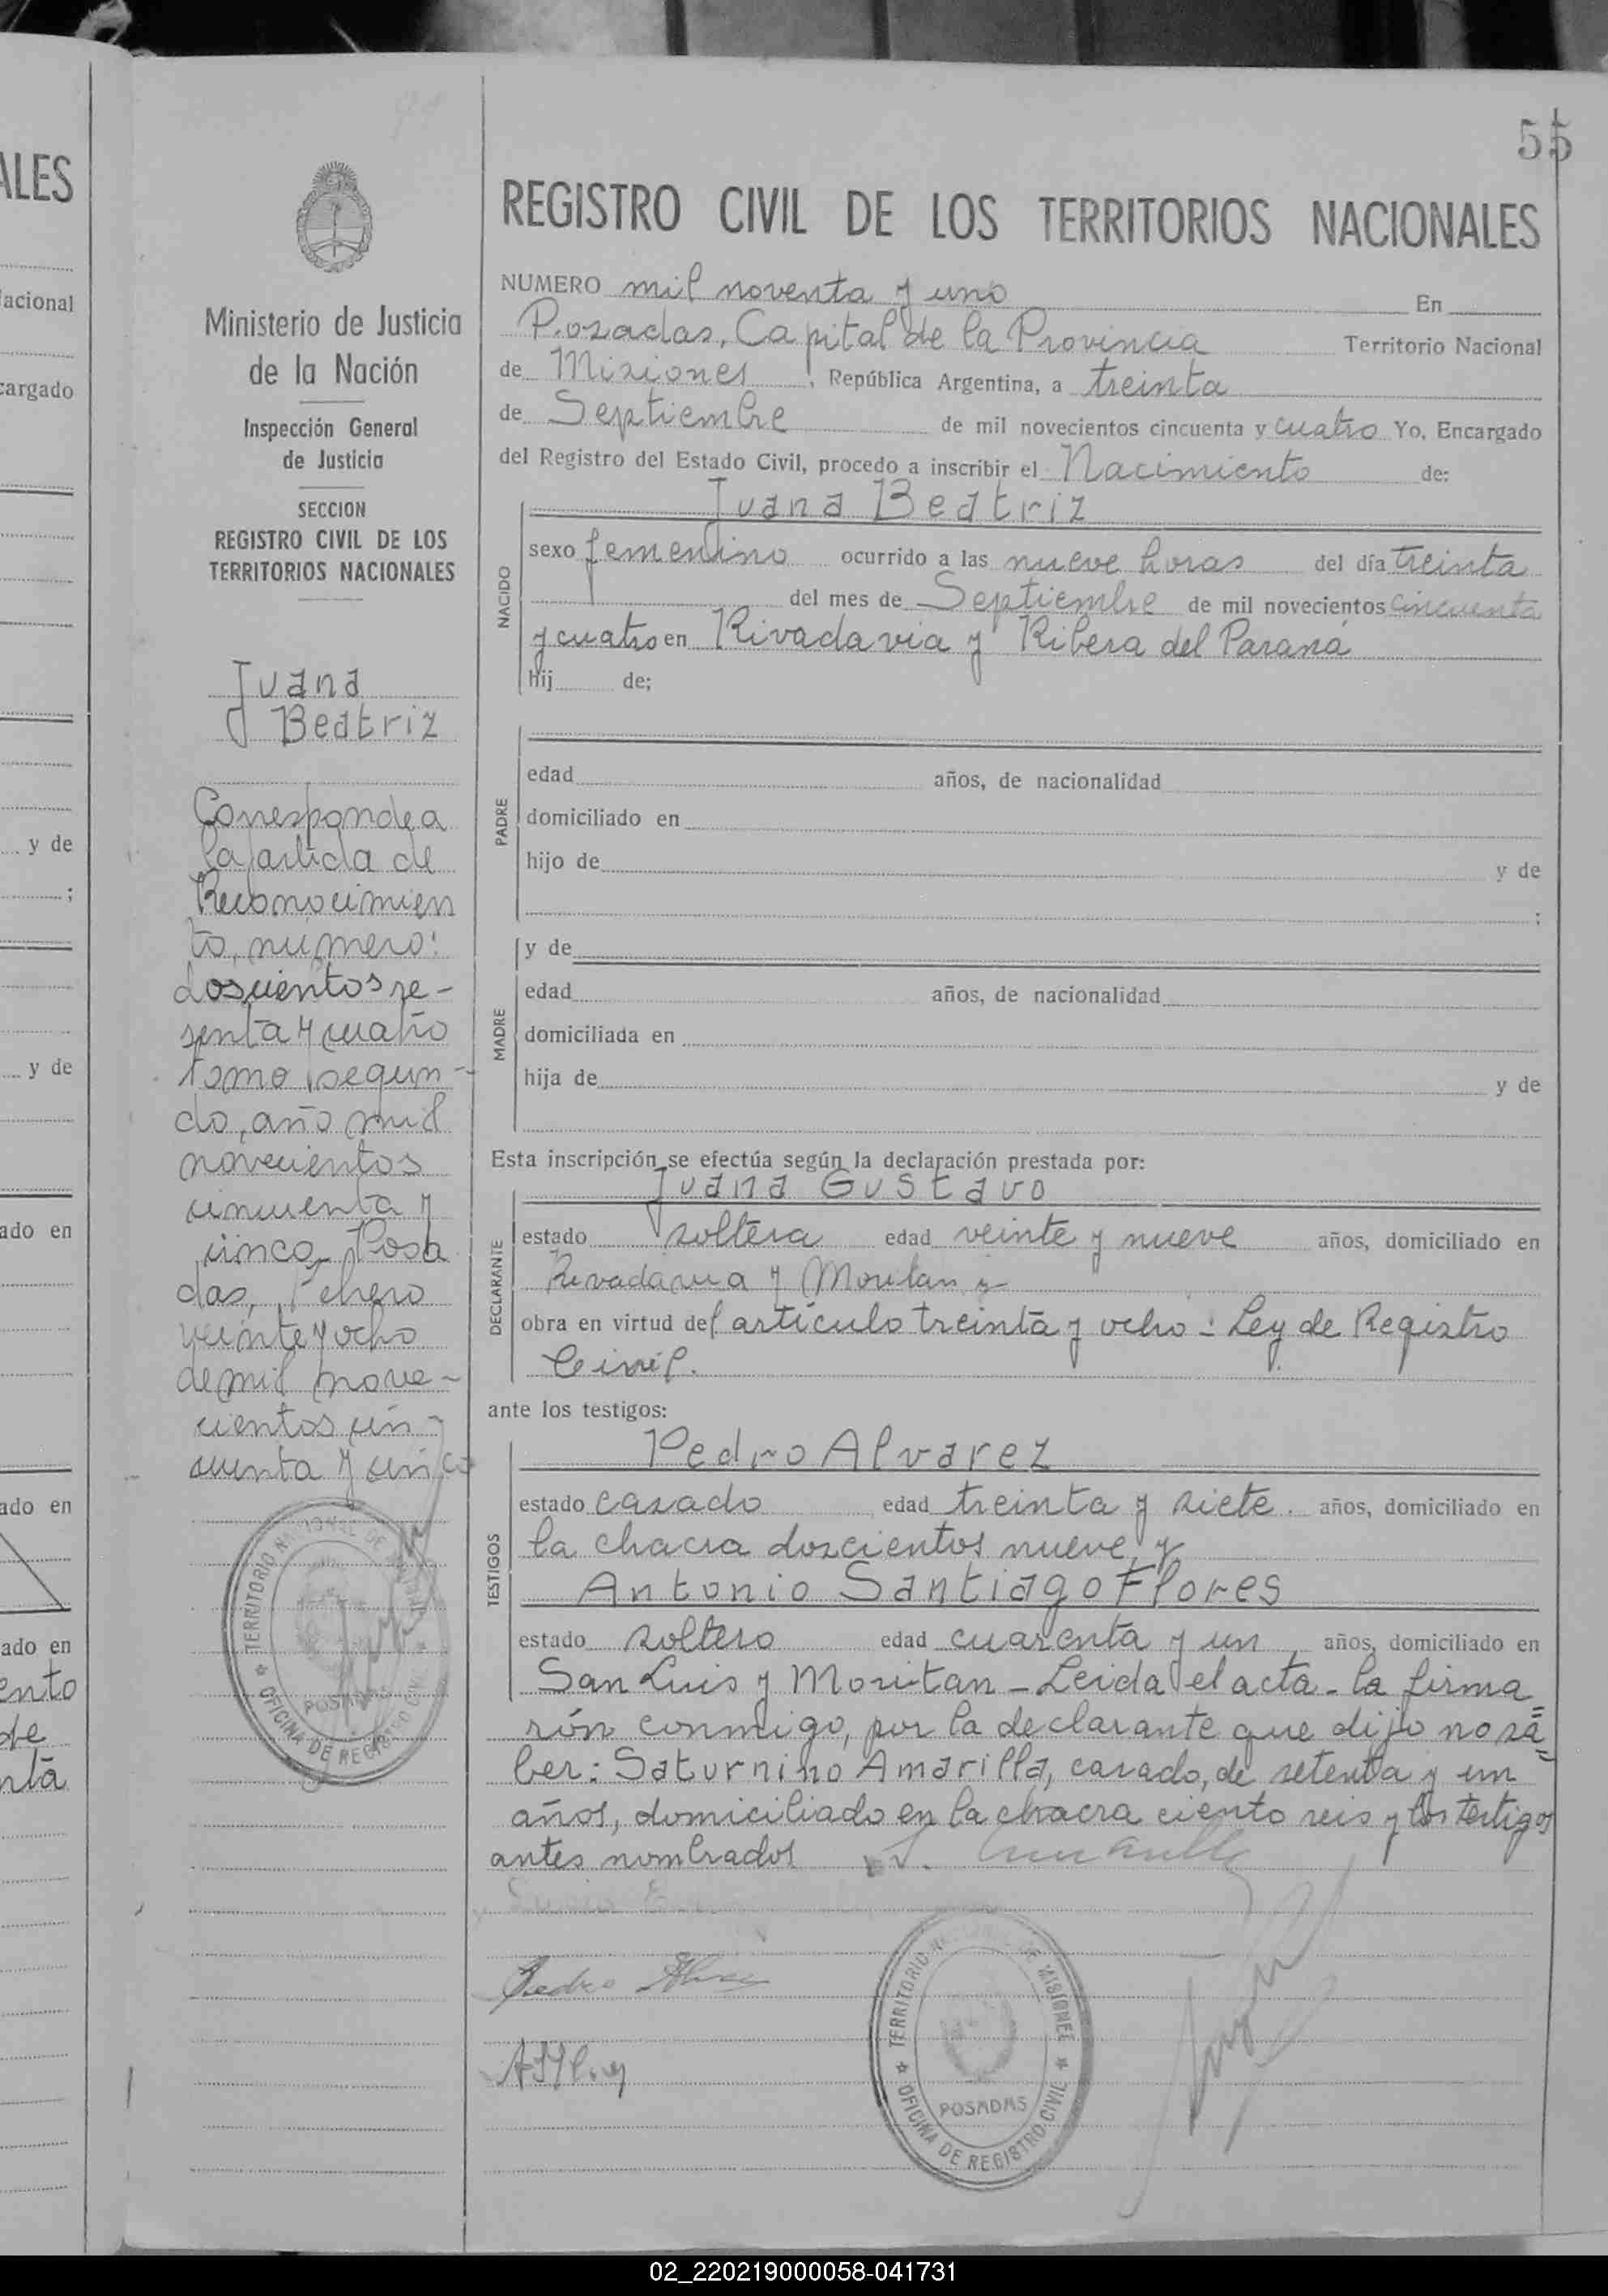 55
REGISTRO CIVIL DE LOS TERRITORIOS NACIONALES
Ministerio de Justicia
de la Nación
Inspección General
de Justicia
SECCION
REGISTRO CIVIL DE LOS
TERRITORIOS NACIONALES
Juana
Beatriz
Corresponde a
la partida de
Reconocimien
to, numero:
doscientos se-
senta y cuatro
tomo segun-
do, año mil
novecientos
cincuenta y
cinco, Posa
das, Febrero
veinte y ocho
de mil nove-
cientos cin-
cuenta y cinco
NUMERO mil noventa y uno En
Posadas, Capital de la Provincia Territorio Nacional
de Misiones, República Argentina, a treinta
de Septiembre de mil novecientos cincuenta y cuatro Yo, Encargado
del Registro del Estado Civil, procedo a inscribir el Nacimiento de:
NACIDO
Juana Beatriz
sexo femenino ocurrido a las nueve horas del día treinta
del mes de Septiembre de mil novecientos cincuenta
y cuatro en Rivadavia y Ribera del Paraná
hij de;
PADRE
edad años, de nacionalidad
domiciliado en
hijo de y de
;
MADRE
y de
edad años, de nacionalidad
domiciliada en
hija de y de
Esta inscripción se efectúa según la declaración prestada por:
DECLARANTE
Juana Gustavo
estado soltera edad veinte y nueve años, domiciliado en
Rivadavia y
obra en virtud del artículo treinta y ocho: Ley de Registro
Civil.
ante los testigos:
TESTIGOS
Pedro Alvarez
estado casado edad treinta y siete. años, domiciliado en
la chacra doscientos nueve y
Antonio Santiago Flores
estado soltero edad cuarenta y un años, domiciliado en
San Luis y Moritan - Leida el acta - la firma=
rón conmigo, por la declarante que dijo no sa=
ber: Saturnino Amarilla, casado, de setenta y un
años, domiciliado en la chacra ciento seis y los testigos
antes nombrados
Pedro
TERRITORIO NACIONAL DE MISIONES
POSADAS
OFICINA DE REGISTRO CIVIL
TERRITORIO DE MISIONES
POSADAS
OFICINA DE REGISTRO CIVIL
ALES
Nacional
cargado
y de
;
y de
ado en
ado en
ado en
ento
de
nta
02_220219000058-041731